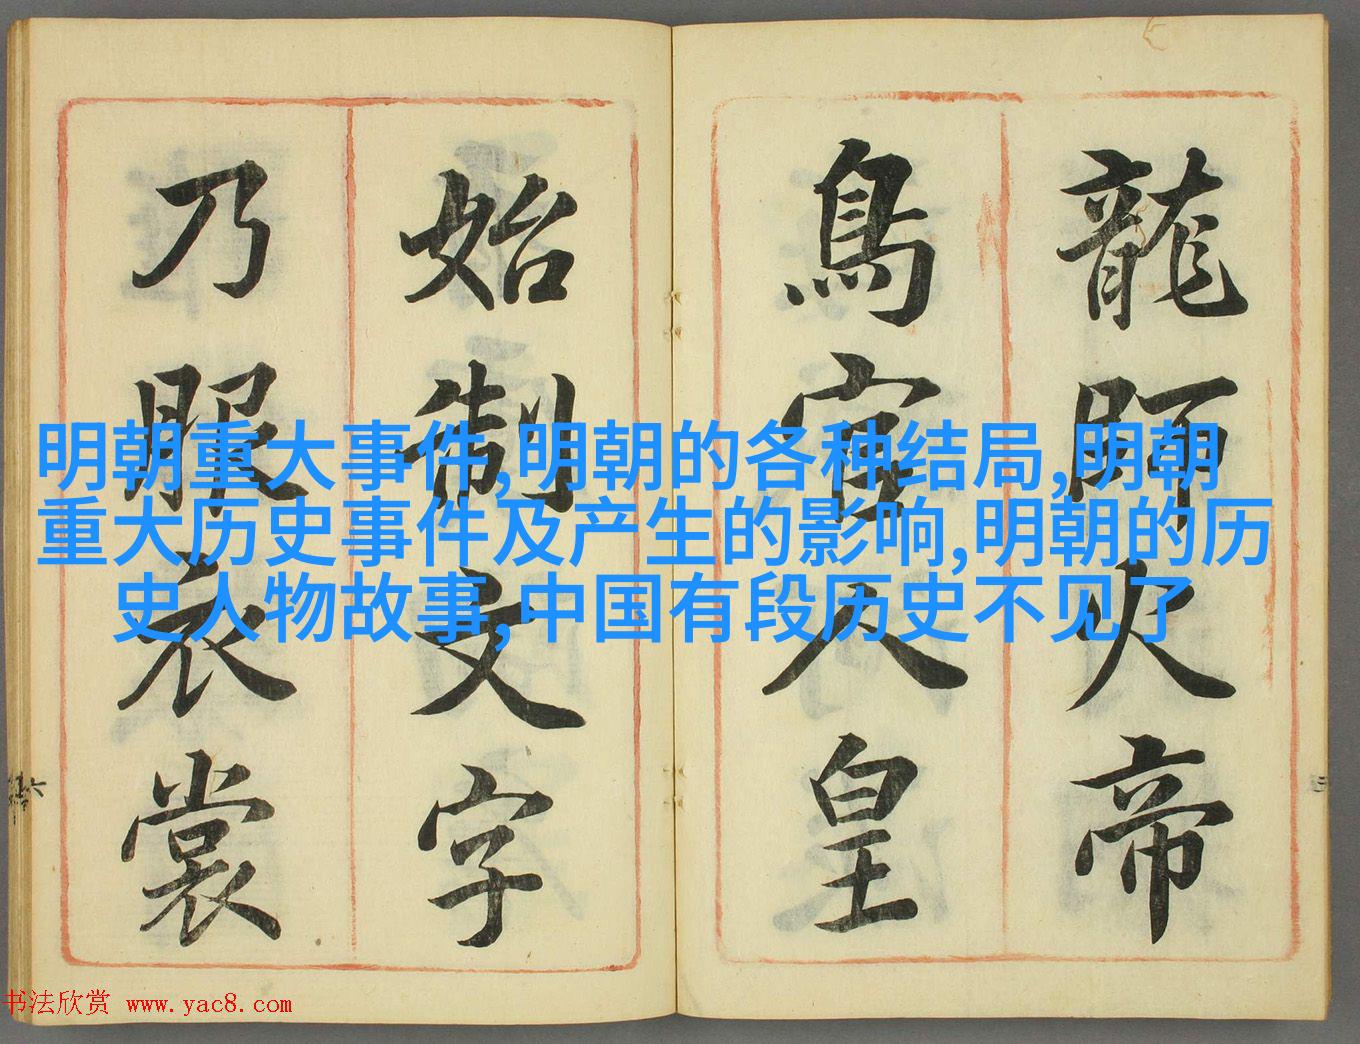 龍師火帝
鳥官人皇
始制文字
乃服衣裳
明朝重大事件,明朝的各种结局,明朝
重大历史事件及产生的影响,明朝的历
史人物故事,中国有段历史不见了
书法欣赏 www.yac8.com